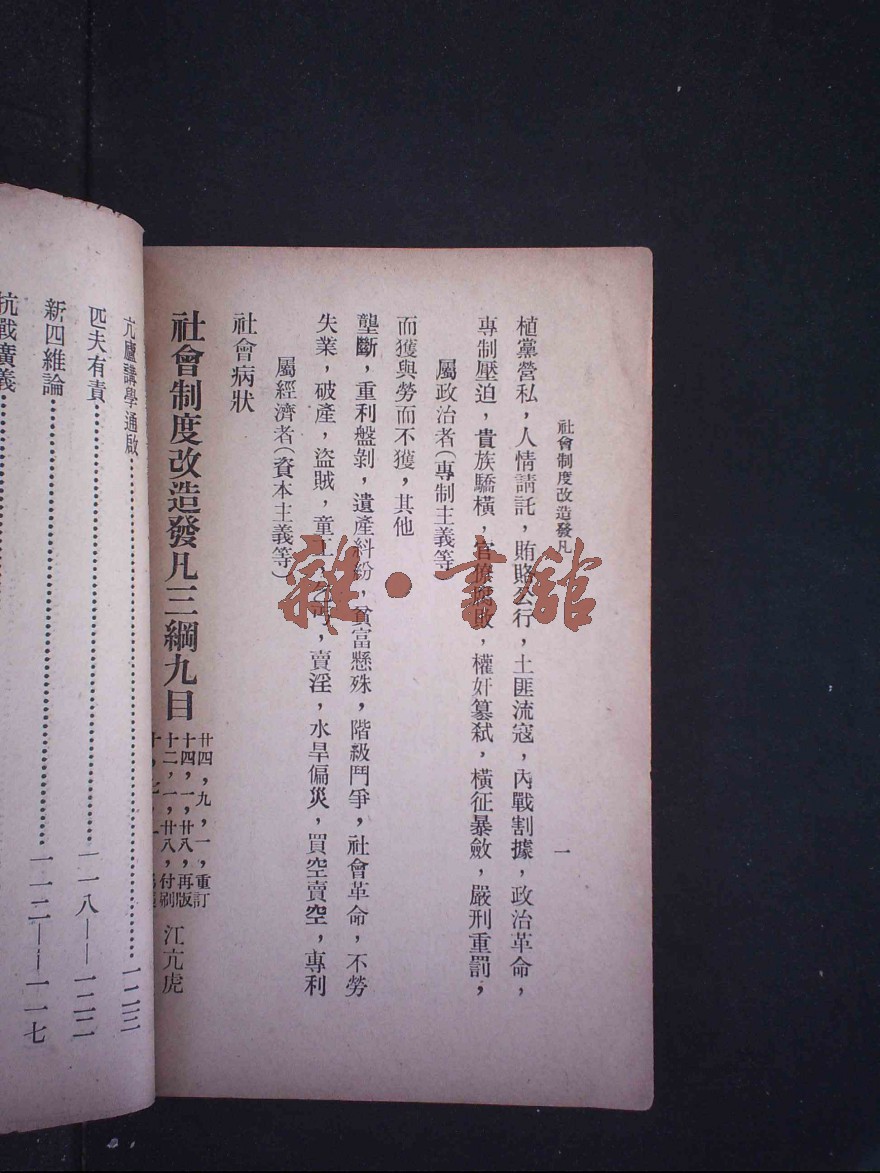 抗戰廣義
新四維論 一一二——一一七
匹夫有責 一一八——一二二
亢廬講學通啟 一二三
社會制度改造發凡三綱九目
十二，一，廿八，付刷
十四，一，廿八，再版
廿四，九，一，重訂
江亢虎
社會病狀
屬經濟者（資本主義等）
失業，破產，盜賊，童工，乞丐，賣淫，水旱偏災，買空賣空，專利
壟斷，重利盤剝，遺產糾紛，貧富懸殊，階級鬥爭，社會革命，不勞
而獲與勞而不獲，其他
屬政治者（專制主義等
專制壓迫，貴族驕橫，官僚，權奸篡弒，橫征暴斂，嚴刑重罰，
植黨營私，人情請託，賄賂公行，土匪流寇，內戰割據，政治革命，
社會制度改造發凡
一
雜·書館